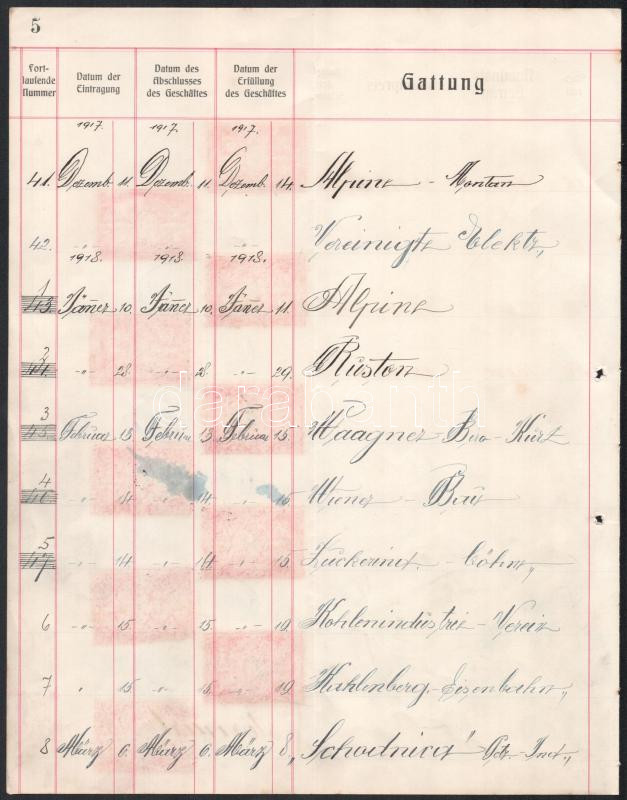 5
Fort-laufende Nummer Datum der Eintragung Datum des Abschlusses des Geschäftes Datum der Erfüllung des Geschäftes Gattung
1917. 1917. 1917.
41. Dezemb. 11. Dezemb. 11. Dezemb. 14. Alpine - Montan
42. -"- -"- Vereinigte Elektr.,
1918. 1918. 1918.
1 43. Jänner 10. Jänner 10. Jänner 11. Alpine
2 44. -"- 28. -"- 28. -"- 29. Ruston
3 45. Februar 13 Februar 13 Februar 15. Waagner - Biro - Kurt
4 46 -"- 14 -"- 14 -"- 15. Wiener - Bau
5 47 -"- 14 -"- 14 -"- 15.
6 -"- 15 -"- 15. -"- 19. Kohlenindustrie - Verein
7 " 15 -"- 15. -"- 19 Kahlenberg - Eisenbahn,,
8 März 6. März 6. März 8 „Schodnica" -
darabanth